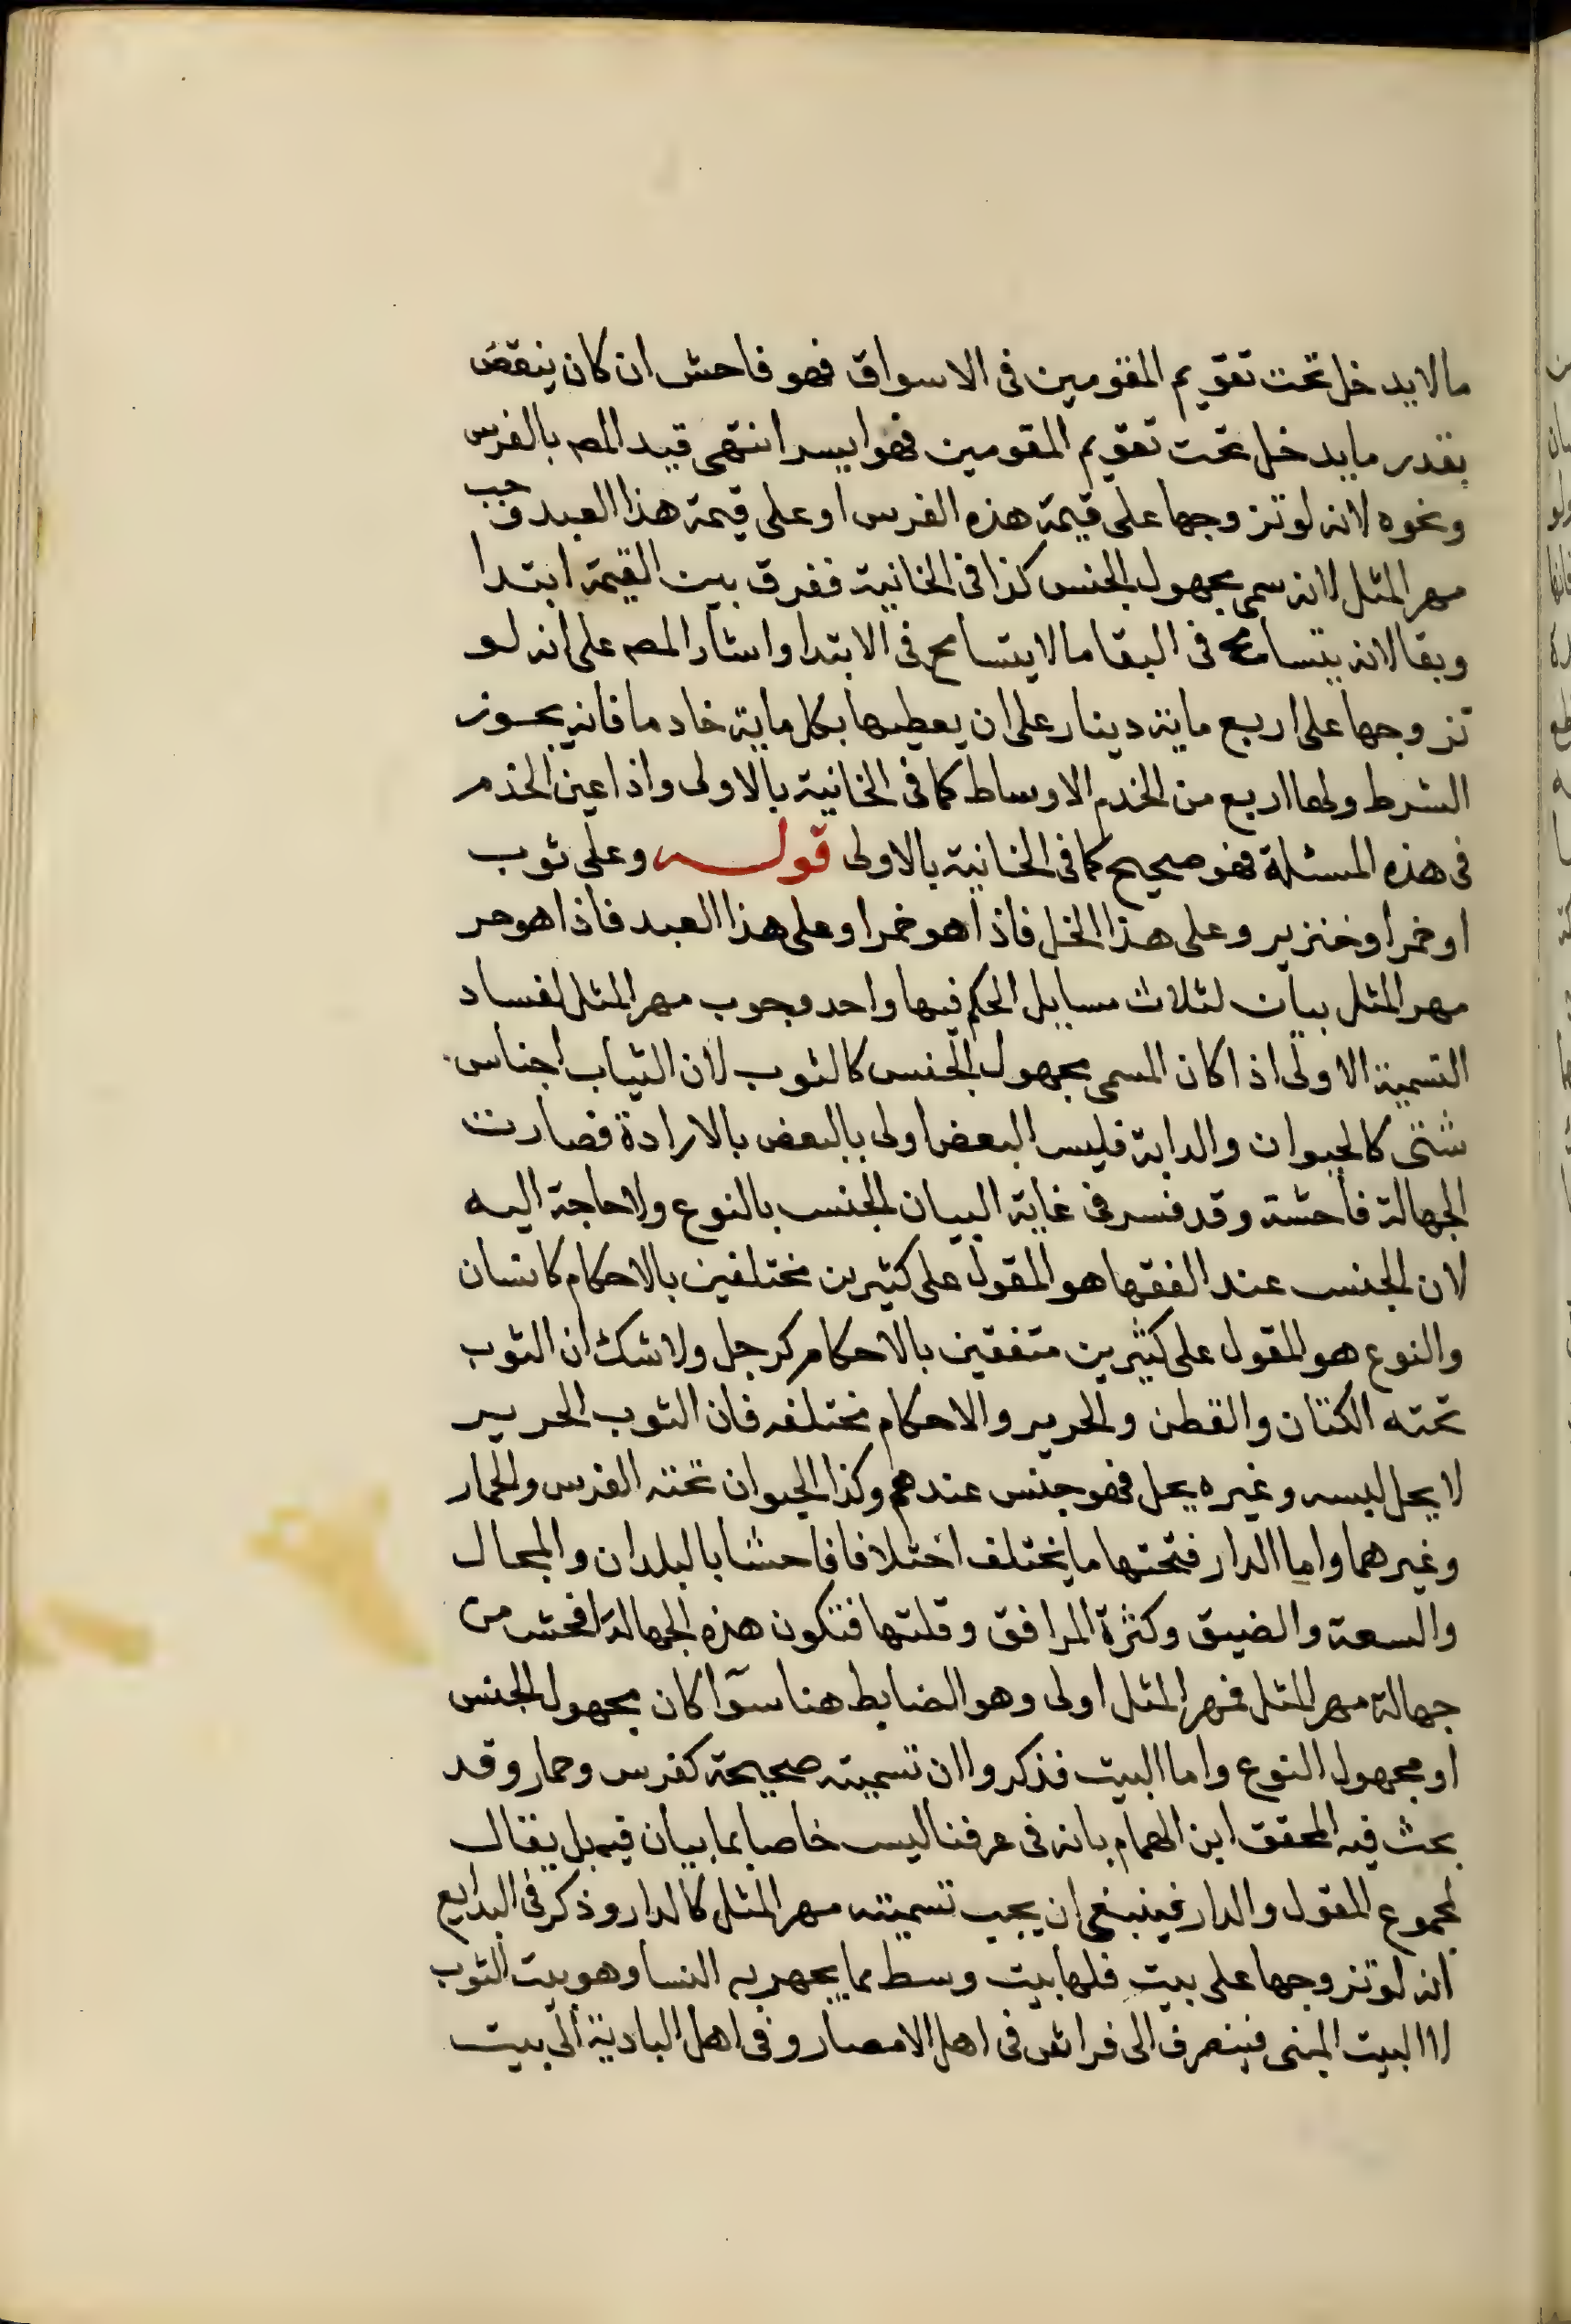 ما لا يدخل تحت تقويم المقومين فى الاسواق فهو فاحش ان كان ينقص
بقدر ما يدخل تحت تقويم المقومين فهو ايسر انتهى قيد المصـ بالفرس
ونحوه لانه لو تزوجها على قيمة هذه الفرس او على قيمة هذا العبد وجب
مهر المثل لانه سمى مجهول الجنس كذا فى الخانية ففرق بين القيمة ابتدا
وبقا لانه يتسامح فى البقا ما لا يتسامح فى الابتدا واشار المصـ على انه لو
تزوجها على اربع ماية دينار على ان يعطيها بكل ماية خادما فانه يجوز
الشرط ولها اربع من الخدم الاوساط كما فى الخانية بالاولى واذا عين الخدم
فى هذه المسئلة فهو صحيح كما فى الخانية بالاولى قوله وعلى ثوب
او خمر او خنزير وعلى هذا الخل فاذا هو خمر او على هذا العبد فاذا هو حر
مهر المثل بيان لثلاث مسايل الحكم فيها واحد وجوب مهر المثل لفساد
التسمية الاولى اذا كان المسمى مجهول الجنس كالثوب لان الثياب اجناس
شتى كالحيوان والدابة فليس البعض اولى بالبعض بالارادة فصارت
الجهالة فاحشة وقد فسر فى غاية البيان الجنس بالنوع ولا حاجة اليه
لان الجنس عند الفقها هو المقول على كثيرين مختلفين بالاحكام كانسان
والنوع هو المقول على كثيرين متفقين بالاحكام كرجل ولا شك ان الثوب
تحته الكتان والقطن والحرير والاحكام مختلفه فان الثوب الحرير
لا يحل لبسه وغيره يحل فهو جنس عندهم وكذا الحيوان تحته الفرس والحمار
وغيرهما واما الدار فتحتها ما يختلف اختلافا فاحشا بالبلدان والمحال
والسعة والضيق وكثرة المرافق وقلتها فتكون هذه الجهالة افحش من
جهالة مهر المثل فمهر المثل اولى وهو الضابط هنا سوآ كان مجهول الجنس
او مجهول النوع واما البيت فذكروا ان تسميته صحيحة كفرس وحمار وقد
بحث فيه المحقق ابن الهمام بانه فى عرفنا ليس خاصا بما يبان فيه بل يقال
لمجموع المقول والدار فينبغى ان يجب تسميته مهر المثل كالدار وذكر فى البدايع
انه لو تزوجها على بيت فلها بيت وسط مما يجهز به النسا وهو بيت الثوب
لا البيت المبنى فينصرف الى فراش فى اهل الامصار وفى اهل البادية الى بيت